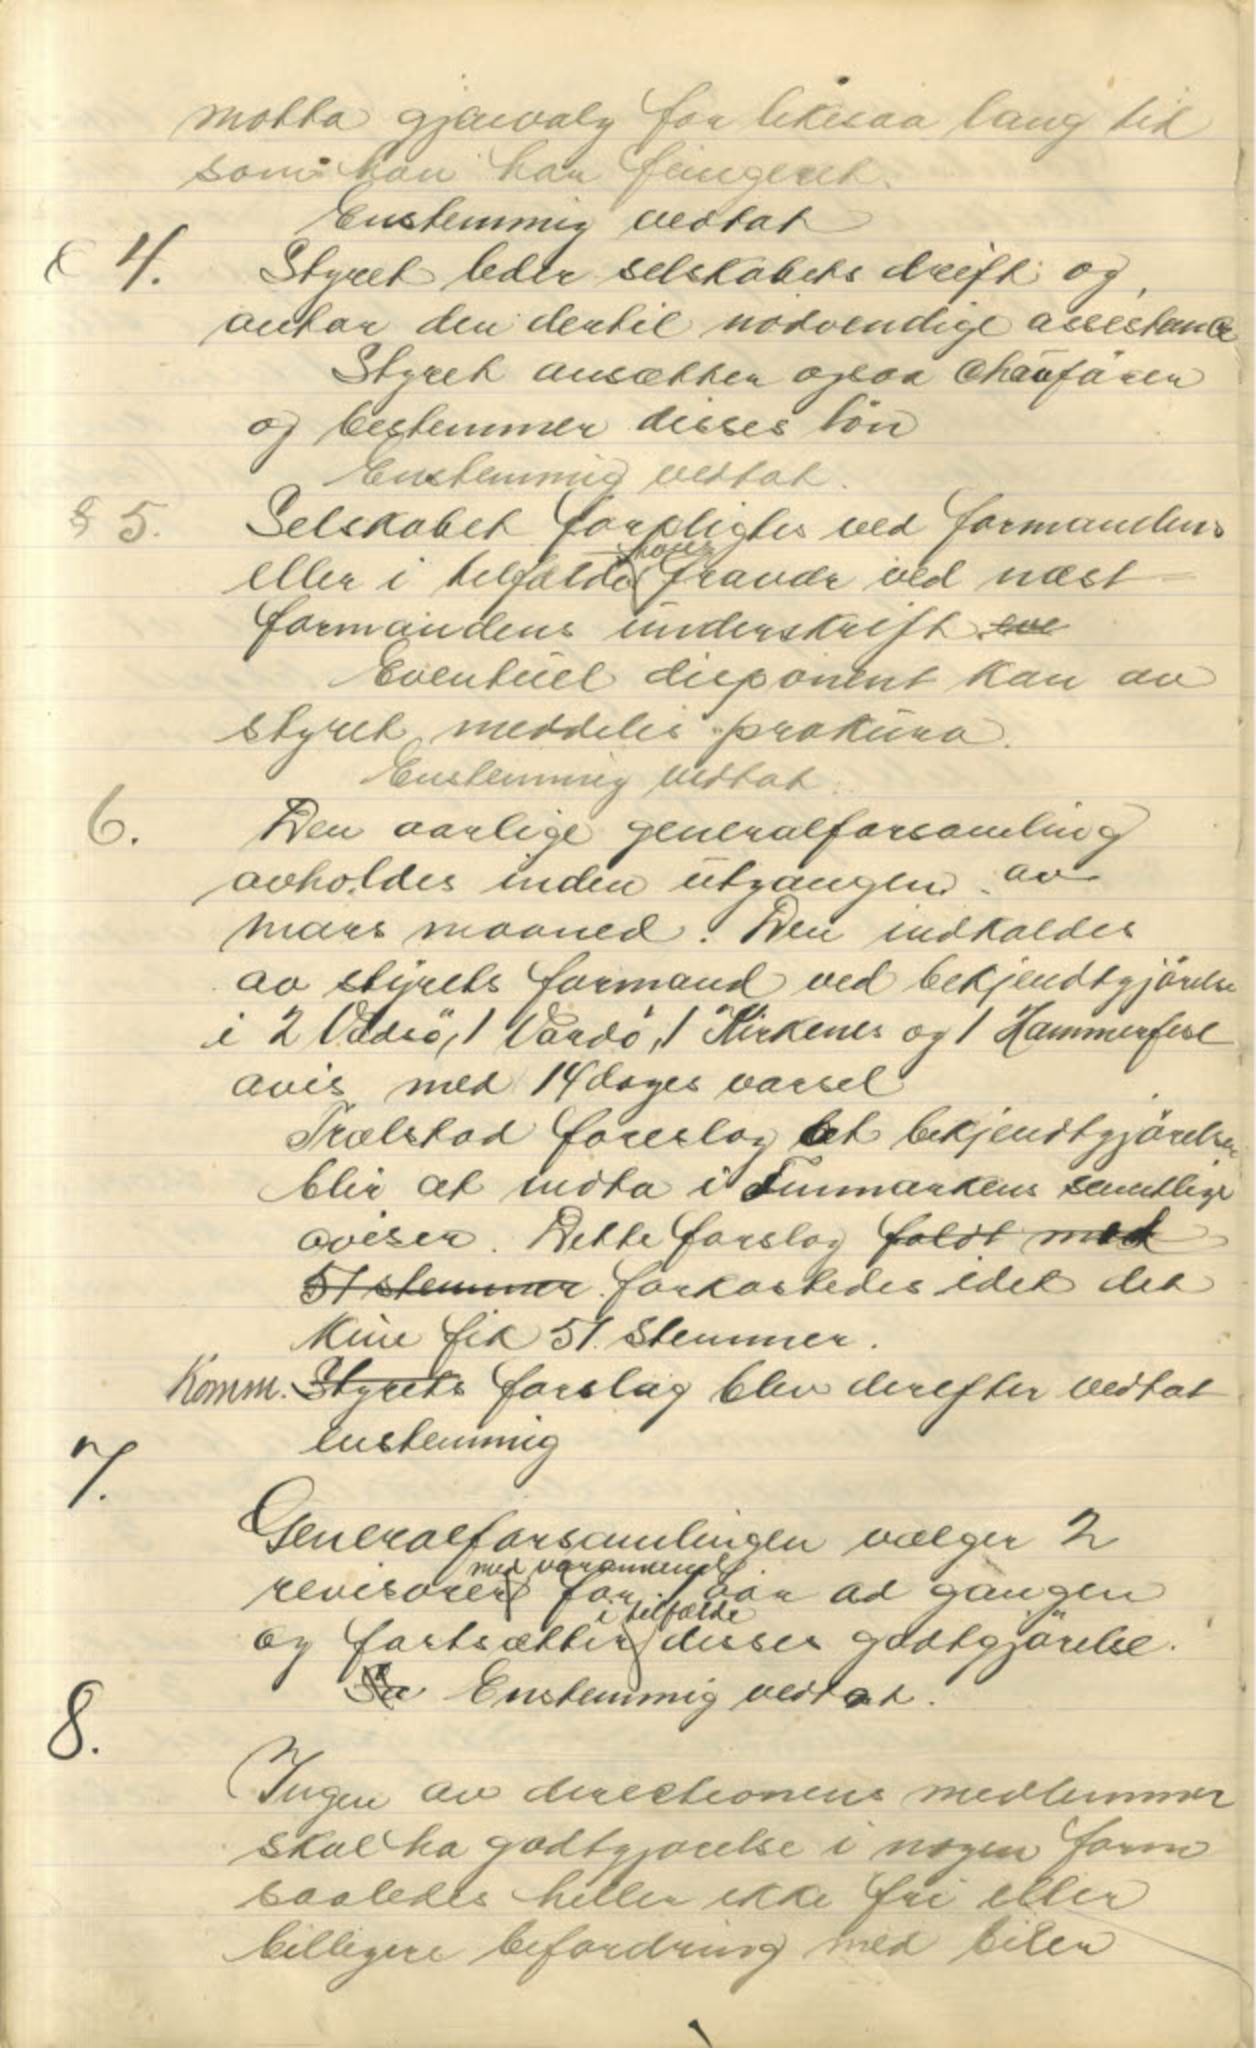 motta gjenvalg for likesaa lang tid
som han har fungeret.
Enstemmig vedtat
§ 4. Styret leder selskabets drift og
antar den dertil nödvendige assistance
Styret ansætter ogsaa chaufören
og bestemmer disses lön
Enstemmig vedtat.
§ 5. Selskabet forpligtes ved formandens
eller i tilfælde hans fravær ved næst-
formandens underskrift eve
Eventuel disponent kan av
styret meddeles prokura.
Enstemmig vedtat.
6. Den aarlige generalforsamling
avholdes inden utgangen av
mars maaned. Den indkaldes
av styrets formand ved bekjendtgjörelse
i 2 Vadsö, 1 Vardö, 1 Kirkenes og 1 Hammerfest
avis med 14 dages varsel
Trælstad foreslog at bekjendtgjörelsen
blir at indta i Finmarkens samtlige
aviser. Dette forslag faldt med
51 stemmer forkastedes idet det
kun fik 51. stemmer.
Komm. Styrets forslag blev derefter vedtat
enstemmig
7.
Generalforsamlingen vælger 2
revisorer med varamænd for 1 aar ad gangen
og fastsætter i tilfælde disses godtgjörelse.
Enstemmig vedtat.
8.
Ingen av direktionens medlemmer
skal ha godtgjorelse i nogen form
saaledes heller ikke fri eller
billigere befordring med bilen